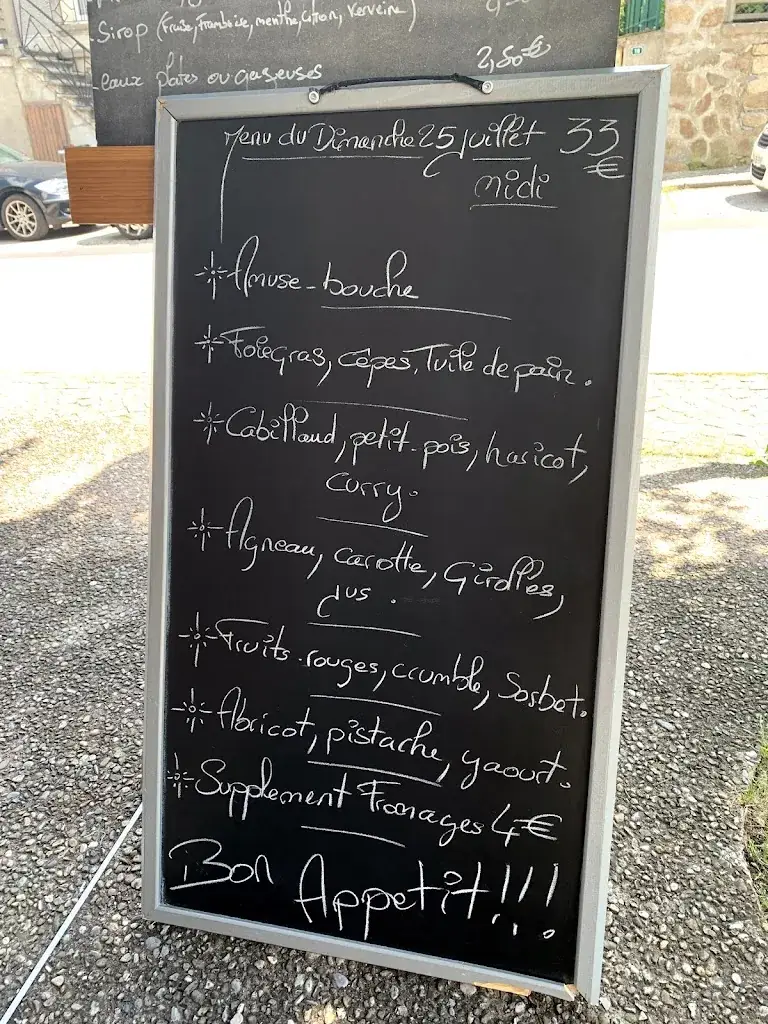 -Sirop (Fraise, Framboise, menthe, Citron, Verveine)
-eaux plates ou gazeuses 2,50€
Menu du Dimanche 25 Juillet 33
€
midi
Amuse-bouche
Foiegras, cêpes, Tuile de pain.
Cabillaud, petit-pois, haricot,
curry.
Agneau, carotte, Girolles,
Jus.
Fruits-rouges, crumble, Sorbet.
Abricot, pistache, yaourt.
Supplement Fromages 4€
Bon Appetit!!!